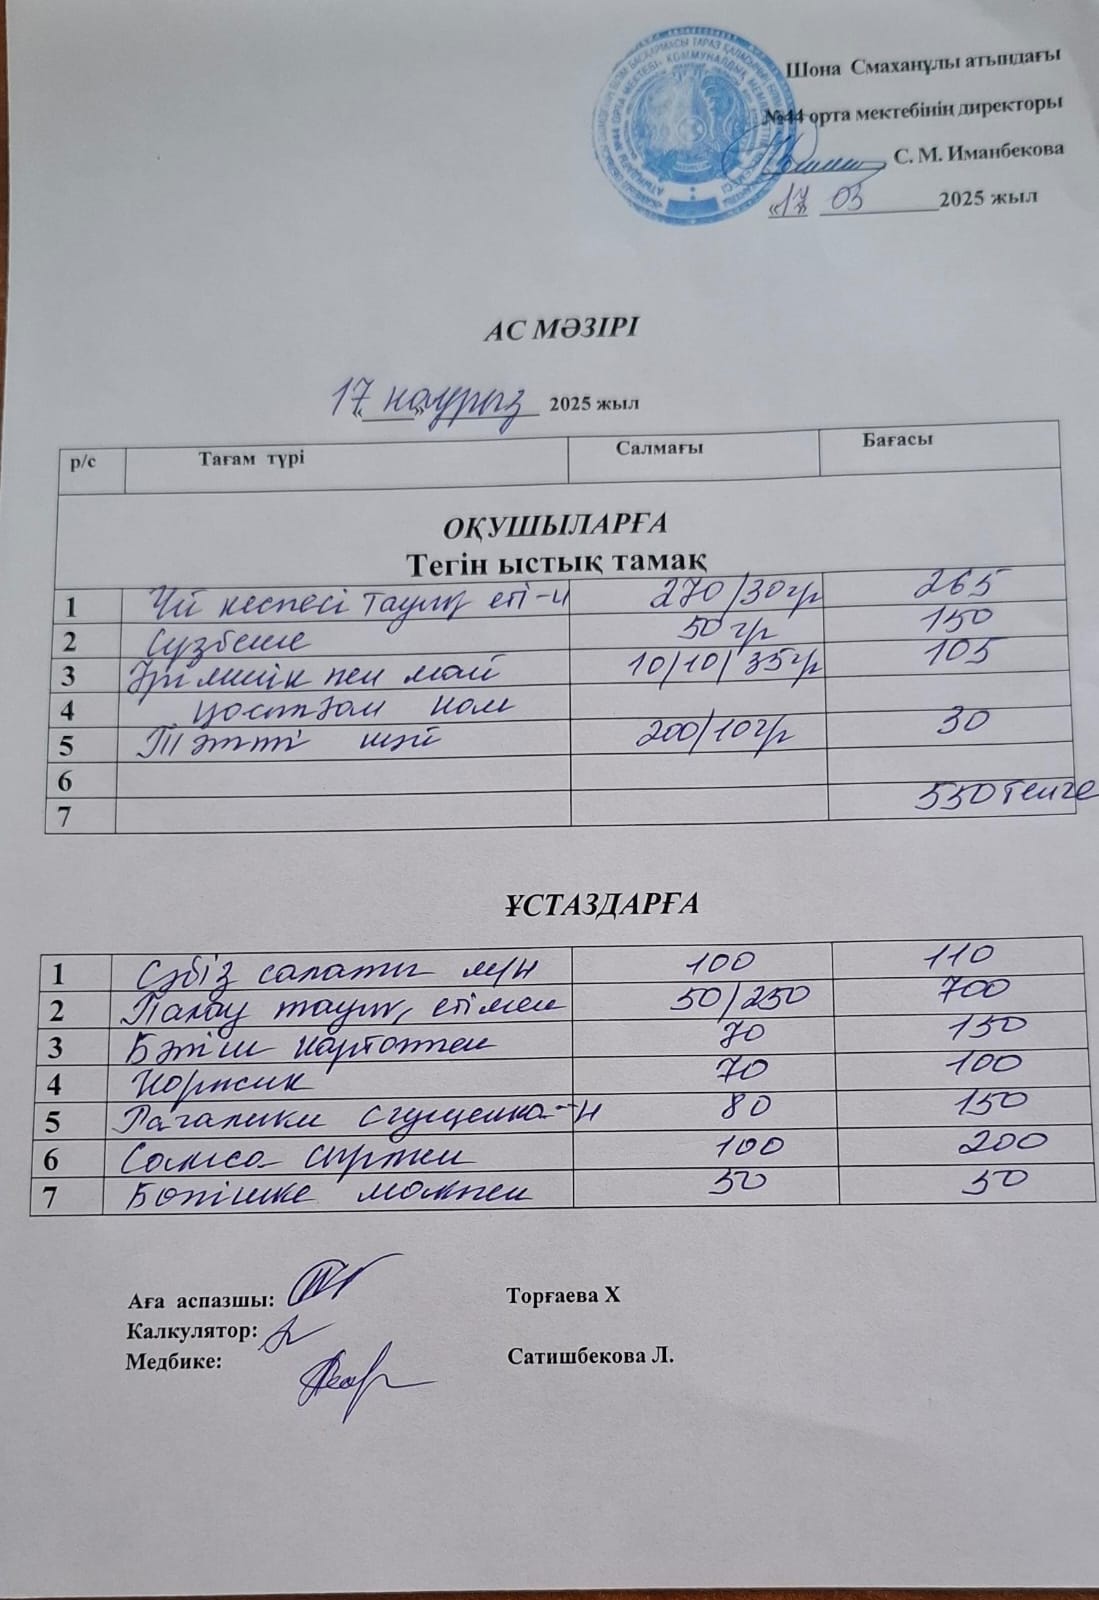 Шона Смаханұлы атындағы
№44 орта мектебінің директоры
С. М. Иманбекова
«17» 03 2025 жыл
АС МӘЗІРІ
17 наурыз 2025 жыл
р/с Тағам түрі Салмағы Бағасы
ОҚУШЫЛАРҒА
Тегін ыстық тамақ
1 Үй кеспесі тауық еті-н 270/30гр 265
2 Сүзбеше 50 гр 150
3 Ірімшік пен май 10/10/35гр 105
4 қосылған нан
5 Тәтті шәй 200/10гр 30
6
7 550 тенге
ҰСТАЗДАРҒА
1 Сәбіз салаты м/н 100 110
2 Палау тауық етімен 50/250 700
3 Бәтіш картоппен 70 150
4 Коржик 70 100
5 Рагалики сгущенка-н 80 150
6 Самса сырпен 100 200
7 Бөпішке макпен 50 50
Аға аспазшы: Торғаева Х
Калкулятор:
Медбике: Сатишбекова Л.